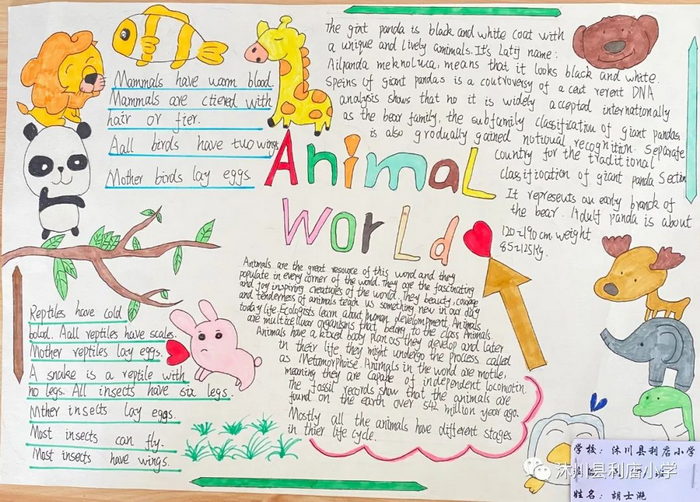 Mammals have warm blood.
Mammals are ctiered with
hair or fier.
Aall birds have two wings
Mother birds lay eggs.
The gint panda is black and white coat with
a unique and lively animals. It's Laty name:
Ailpanda meknoluca, means that it looks black and white.
Speins of giant pandas is a coutroversy of a cast rerent DNA
analysis shows that no it is widely accepted internationally
as the bear family, the subfamily classification of giant pandas
is also gradually gained notiual recognition. Separate
country for the traditional
classification of giant panda Section
It represents an early branch of
the bear. Adulf panda is about
120~190cm, weight
85~125kg.
Animal
World
Reptiles have cold
bolod. Aall reptiles have scales.
Mother reptiles lay eggs.
A snake is a reptile with
no legs. All insects have six legs.
Mther insects lay eggs.
Most insects can fly.
Most insects have wings.
Animals are the great resource of this word and they
populate in every corner of the world. They are the fascinating
and joy inspiring creatures of the world. They beauty, courage
and tenderness of animals teach us something new in our day
today life. Ecologists learn about human development. Animals
are multicelluar organisms that belong to the class Animals.
Animals have a kixed baby plan as they develop and later
in their life they might undergo the process called
as Metamorphise. Animals in the world are motile,
meaning they are capable of independent locomotin.
The fossil records show that the animals are
found on the earth over 542 million year ago.
Mostly all the animals have different stages
in thier life cycle.
学校：沐川县利店小学
沐川县利店小学
姓名：胡士滟